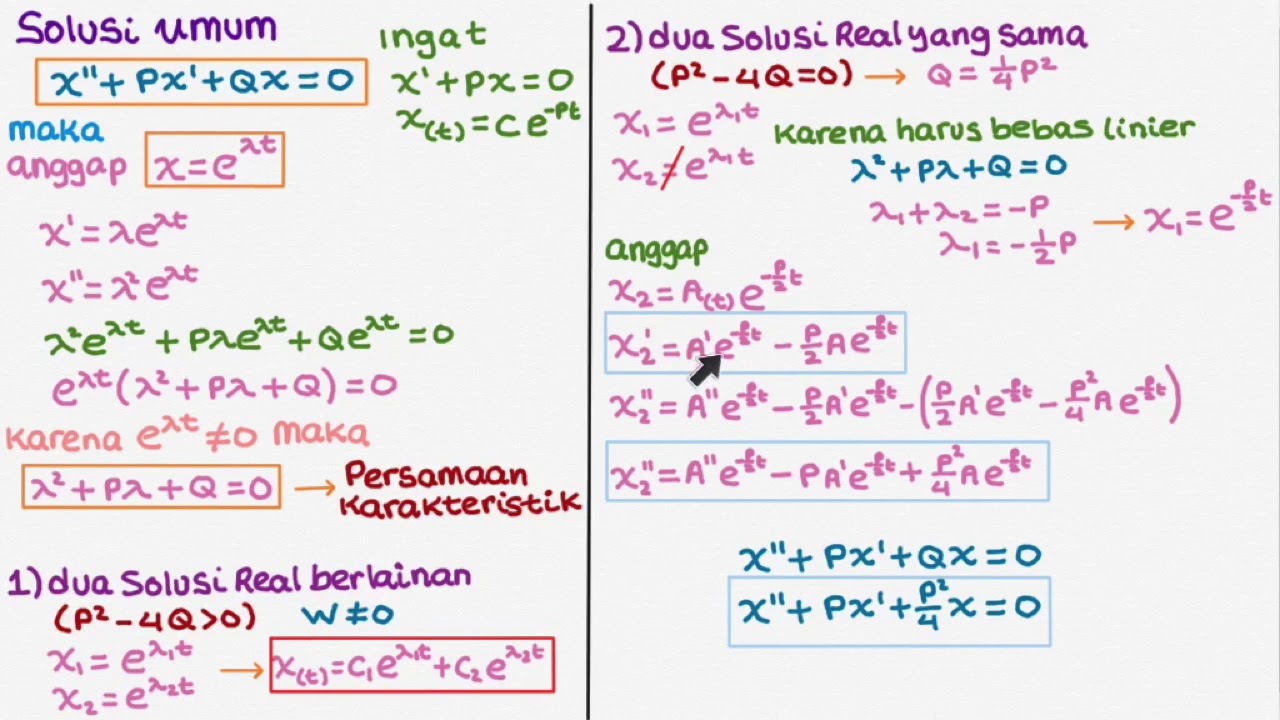 Solusi umum
x'' + Px' + Qx = 0
ingat
x' + px = 0
x(t) = c e^{-pt}
maka
anggap x = e^{λt}
x' = λe^{λt}
x'' = λ²e^{λt}
λ²e^{λt} + Pλe^{λt} + Qe^{λt} = 0
e^{λt}(λ² + Pλ + Q) = 0
Karena e^{λt} ≠ 0 maka
λ² + Pλ + Q = 0 → Persamaan
Karakteristik
1) dua Solusi Real berlainan
(P² - 4Q > 0) W ≠ 0
x₁ = e^{λ₁t}
x₂ = e^{λ₂t}
→ x(t) = c₁e^{λ₁t} + c₂e^{λ₂t}
2) dua Solusi Real yang sama
(P² - 4Q = 0) → Q = ¼P²
x₁ = e^{λ₁t}
x₂ ≠ e^{λ₁t}
Karena harus bebas linier
λ² + Pλ + Q = 0
λ₁ + λ₂ = -P
λ₁ = -½P → x₁ = e^{-P/2 t}
anggap
x₂ = A(t) e^{-P/2 t}
x₂' = A'e^{-P/2 t} - P/2 Ae^{-P/2 t}
x₂'' = A''e^{-P/2 t} - P/2 A'e^{-P/2 t} - (P/2 A'e^{-P/2 t} - P²/4 Ae^{-P/2 t})
x₂'' = A''e^{-P/2 t} - PA'e^{-P/2 t} + P²/4 Ae^{-P/2 t}
x'' + Px' + Qx = 0
x'' + Px' + P²/4 x = 0